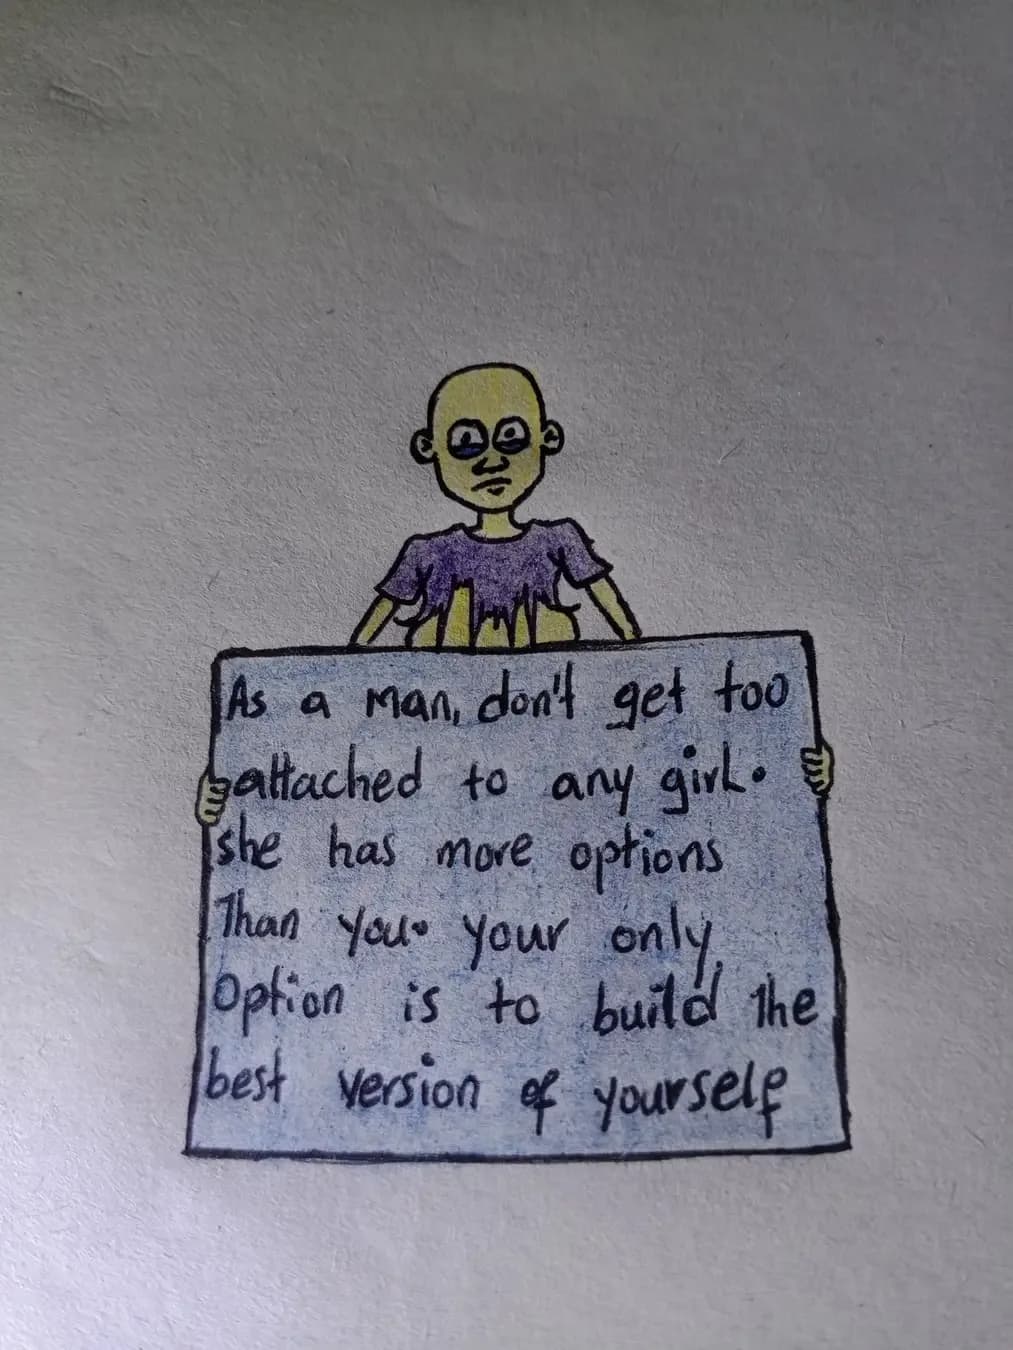 As a man, don't get too
attached to any girl.
she has more options
Than you. your only
option is to build the
best version of yourself